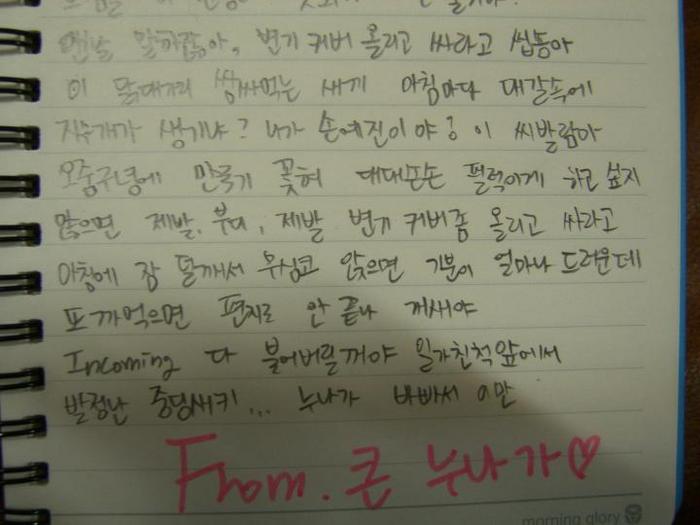 맨날 말하잖아, 변기 커버 올리고 싸라고 씹동아
이 닭대가리 쌈싸먹는 새끼 아침마다 대갈속에
지우개가 생기냐? 너가 손예진이야? 이 씨발람아
오줌구녕에 만국기 꽂혀 대대손손 펄럭이게 하고 싶지
않으면 제발, 부디, 제발 변기 커버좀 올리고 싸라고
아침에 잠 덜깨서 무심코 앉으면 기분이 얼마나 드러운데
또 까먹으면 편지로 안 끝나 개새야
Incoming 다 불어버릴꺼야 일가친척앞에서
발정난 중딩새키... 누나가 바빠서 이만
From. 큰 누나가♡
morning glory